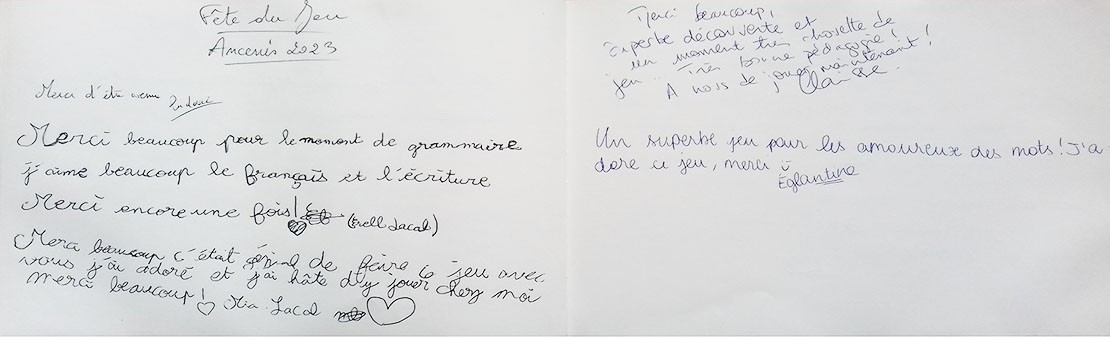 Fête du Jeu
Ancenis 2023
Merci d'être venu
Merci beaucoup pour le moment de grammaire
j'aime beaucoup le français et l'écriture
Merci encore une fois! (Erell Jacal)
Merci beaucoup c'était génial de faire ce jeu avec
vous j'ai adoré et j'ai hâte d'y jouer chez moi
merci beaucoup! Mia Jacal
Merci beaucoup,
superbe découverte et
un moment très chouette de
jeu... Très bonne pédagogie!
A nous de jouer maintenant!
Un superbe jeu pour les amoureux des mots! J'a-
dore ce jeu, merci
Églantine